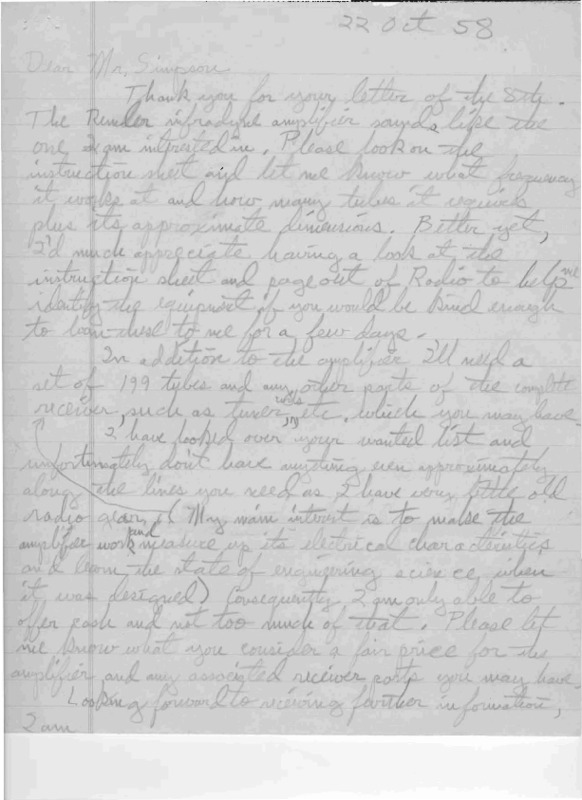 22 Oct 58
Dear Mr. Simpson
Thank you for your letter of the 5th.
The Remler infradyne amplifier sounds like the
one I am intrested in. Please look on the
instruction sheet and let me know what frequency
it works at and how many tubes it requires
plus its approximate dimensions. Better yet,
I'd much appreciate having a look at the
instruction sheet and page out of Radio to help me
identify the equipment if you would be kind enough
to loan these to me for a few days.
In addition to the amplifier I'll need a
set of 199 tubes and any other parts of the complete
receiver, such as tuner, etc. which you may have.
I have looked over your wanted list and
unfortunately don't have anything even approximately
along the lines you need as I have very little old
radio gear. (My main interest is to make the
amplifier work and measure up its electrical characteristics
and learn the state of engineering science when
it was designed) Consequently I am only able to
offer cash and not too much of that. Please let
me know what you consider a fair price for the
amplifier and any associated reciver parts you may have.
Looking forward to reciving further information,
I am